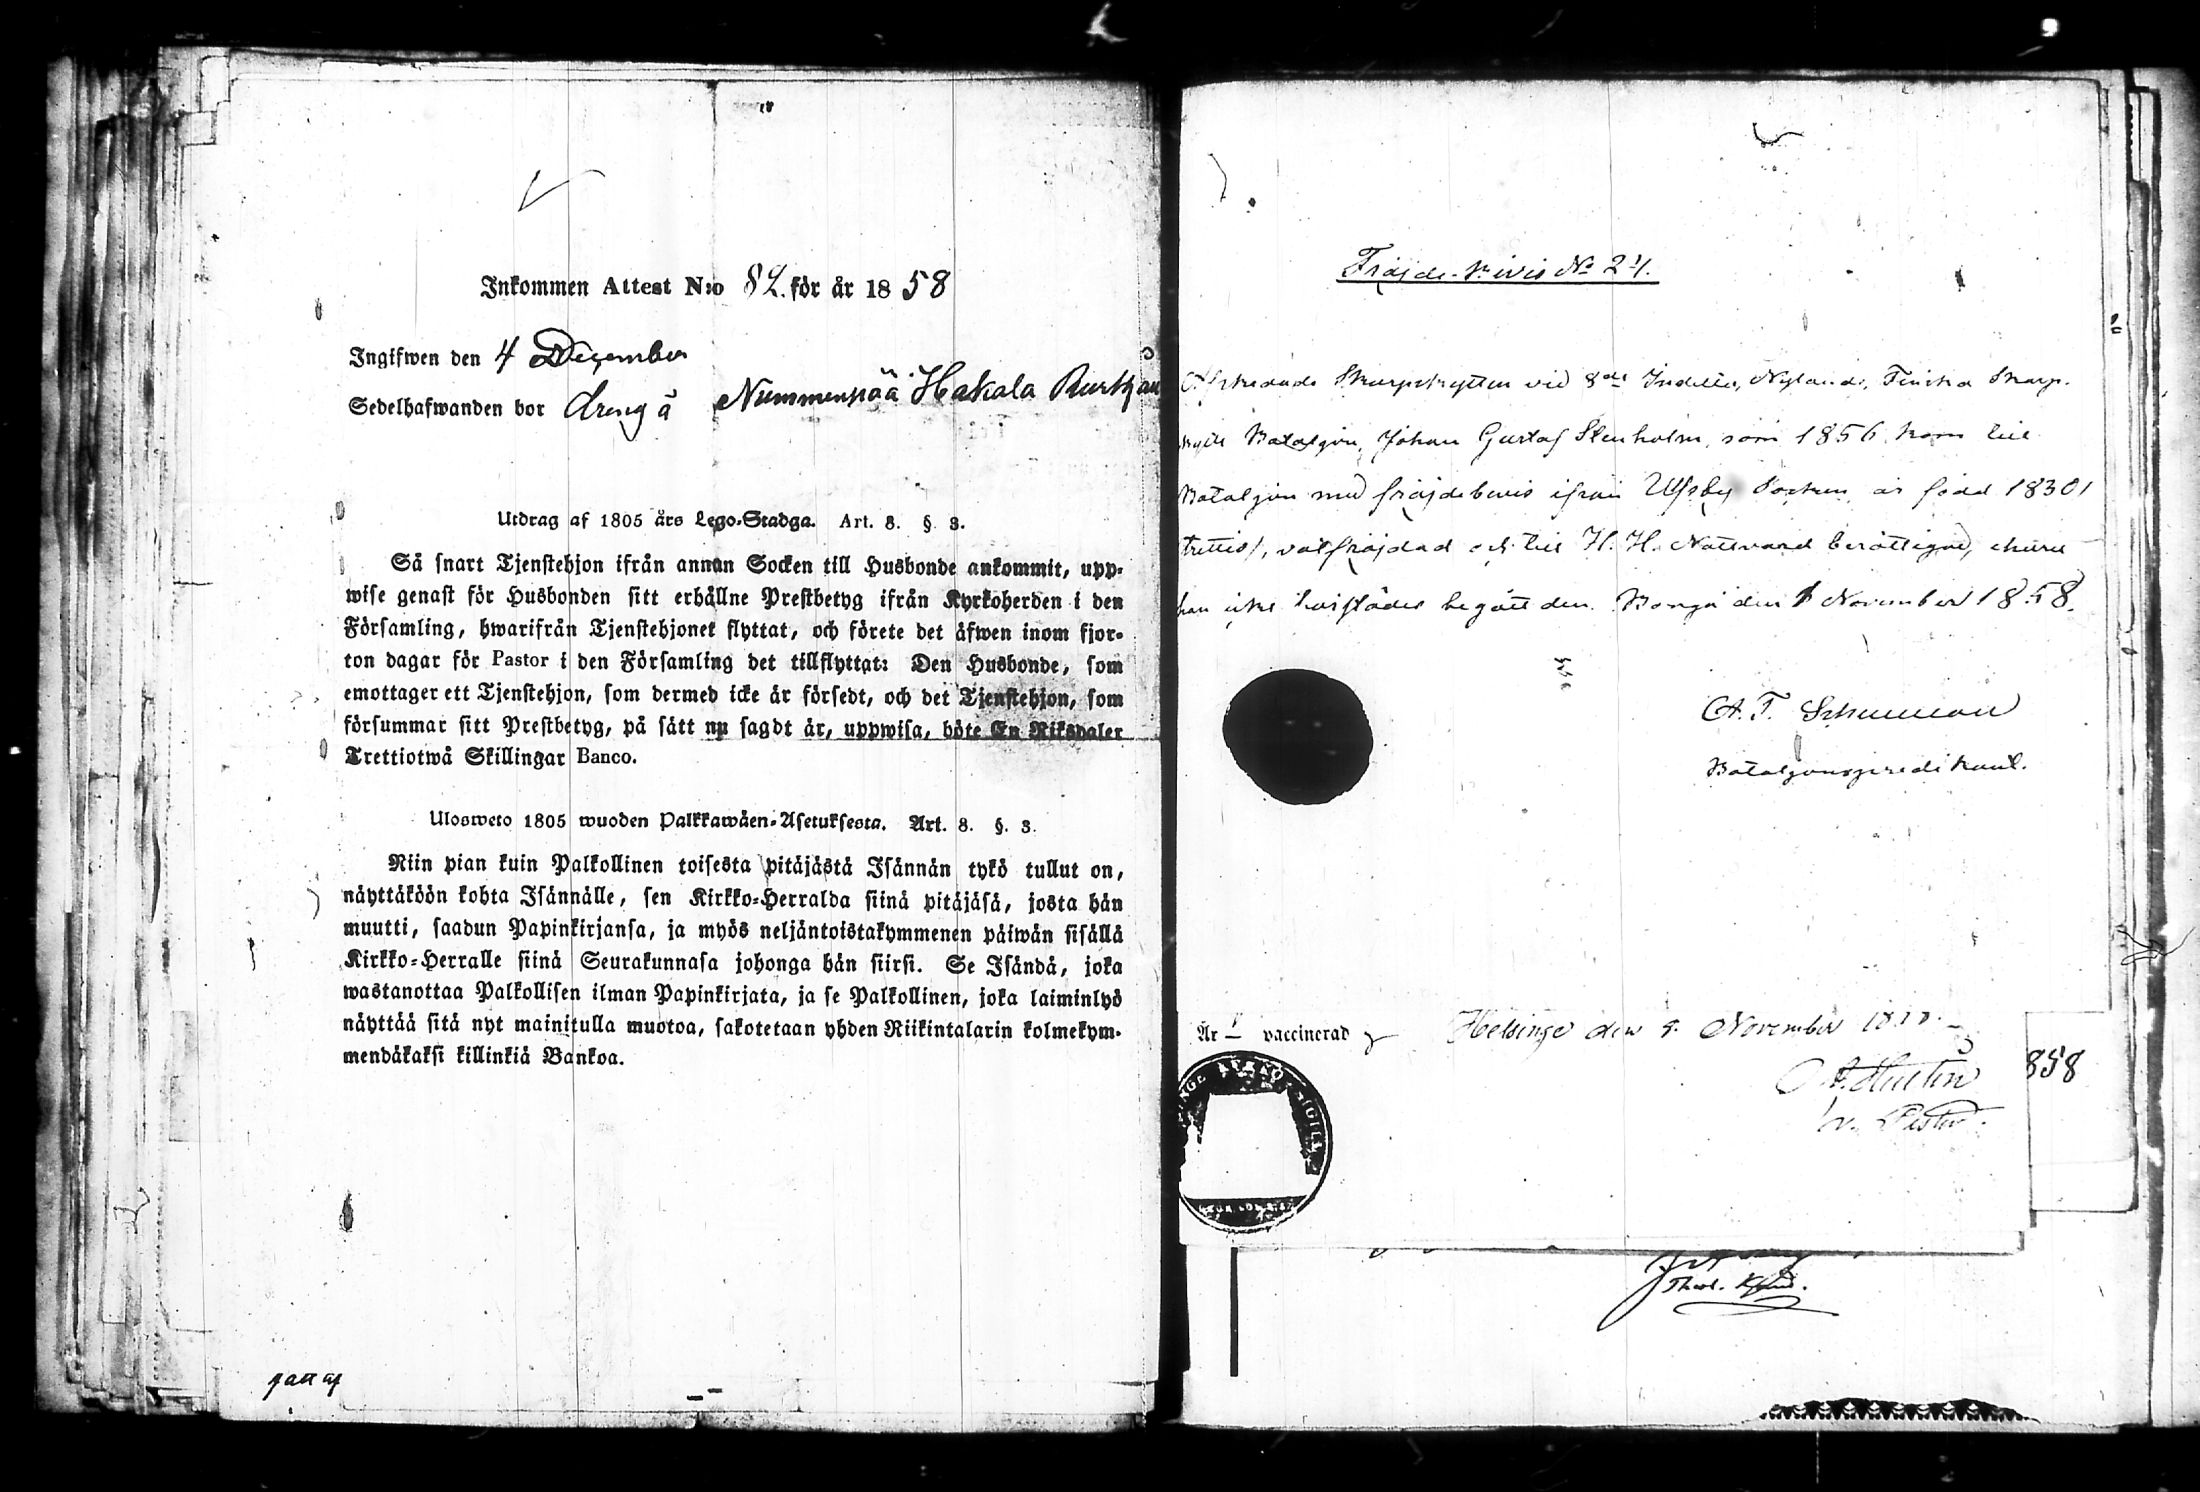 Inkommen Attest N:o 82. för år 1858
Ingifwen den 4 December
Sedelhafwanden bor dreng å Nummenpää Hakala
Utdrag af 1805 års Lego-Stadga. Art. 8. § 3.
Så snart Tjenstehjon ifrån annan Socken till Husbonde ankommit, upp-
wise genast för Husbonden sitt erhållne Prestbetyg ifrån Kyrkoherden i den
Församling, hwarifrån Tjenstehjonet flyttat, och förete det äfwen inom fjor-
ton dagar för Pastor i den Församling det tillflyttat: Den Husbonde, som
emottager ett Tjenstehjon, som dermed icke är försedt, och det Tjenstehjon, som
försummar sitt Prestbetyg, på sätt nu sagdt är, uppwisa, böte En Riksdaler
Trettiotwå Skillingar Banco.
Ulosweto 1805 wuoden Palkkawäen-Asetuksesta. Art. 8. §. 3.
Niin pian kuin Palkollinen toisesta pitäjästä Isännän tykö tullut on,
näyttäköön kohta Isännälle, sen Kirkko-Herralda siinä pitäjäsä, josta hän
muutti, saadun Papinkirjansa, ja myös neljäntoistakymmenen päiwän sisällä
Kirkko-Herralle siinä Seurakunnasa johonga hän siirsi. Se Isändä, joka
wastanottaa Palkollisen ilman Papinkirjata, ja se Palkollinen, joka laiminlyö
näyttää sitä nyt mainitulla muotoa, sakotetaan yhden Riikintalarin kolmekym-
mendäkaksi killinkiä Bankoa.
Fräjde-bevis No 24.
Afskedade Skarpskytten vid 8de Indelta, Nylands, Finska Skarp-
skytte Bataljon, Johan Gustaf Stenholm, som 1856 kom till
Bataljon med fräjdebevis ifrån Ulfsby Socken, är född 1830/
trettio/, välfräjdad och till H. H. Nattvard berättigad, ehuru
han icke härstädes begått den. Borgå den 1 November 1858.
A. F. Schuman
Bataljonspredikant.
Är vaccinerad
Helsinge den 5. November 1858.
v. Pastor.
858